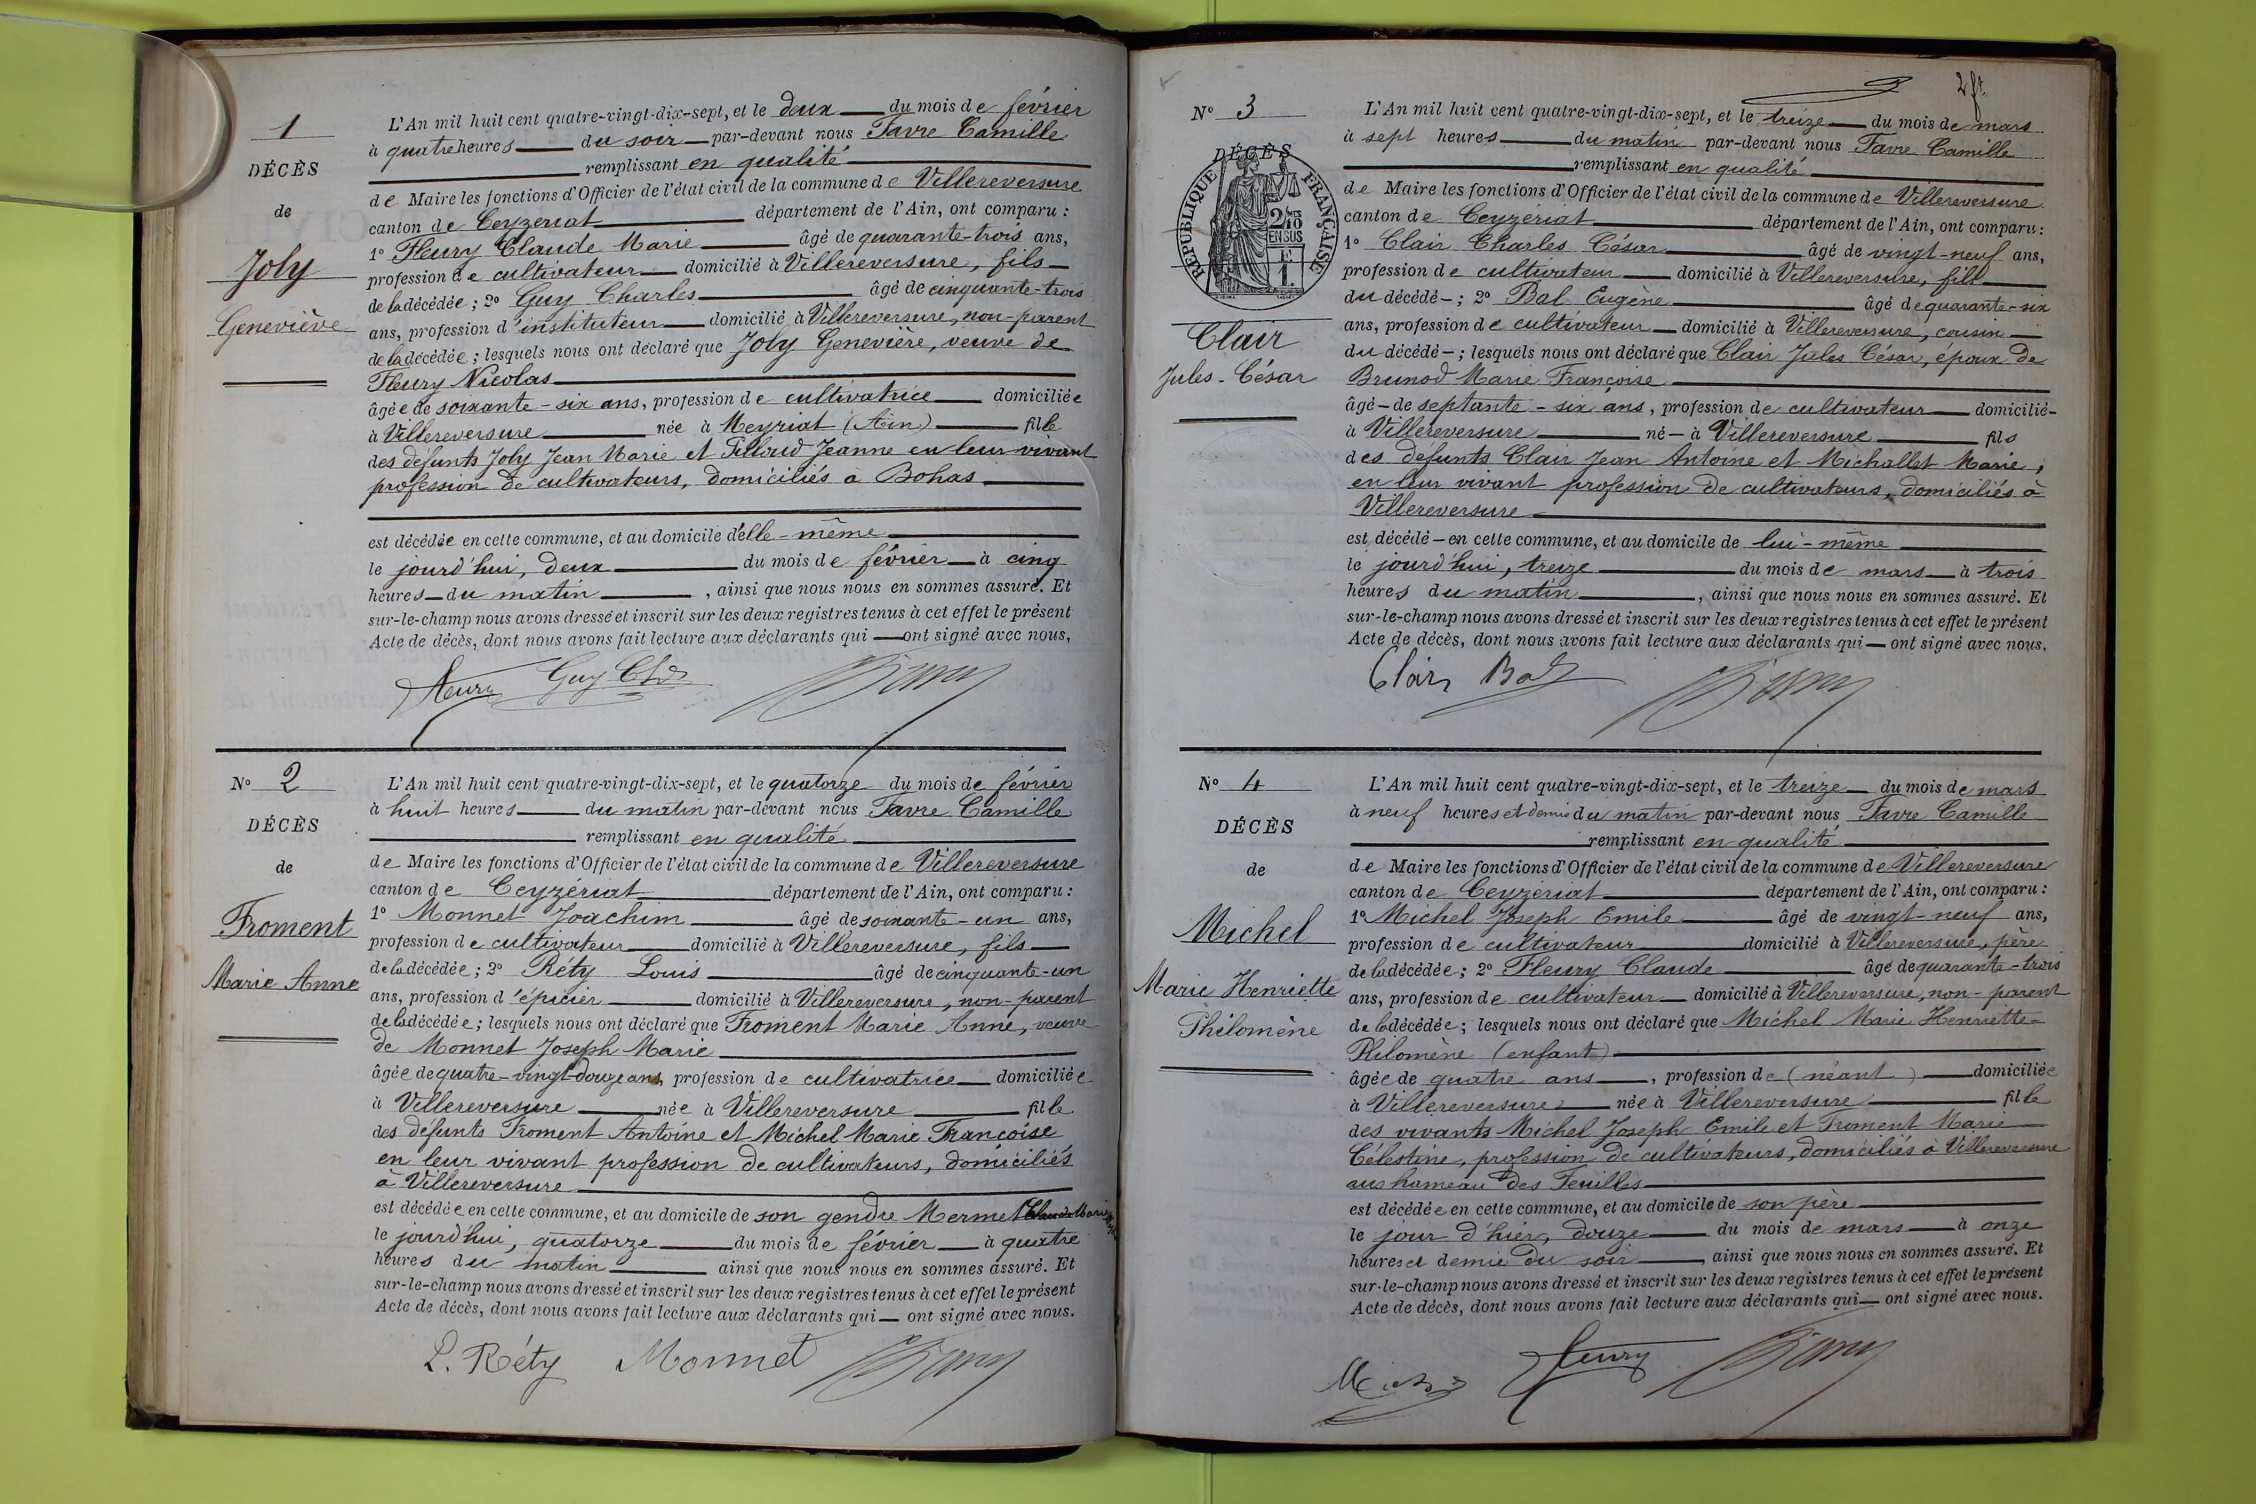 1
DÉCÈS
de
Joly
Geneviève
L'An mil huit cent quatre-vingt-dix-sept, et le deux du mois de février
à quatre heures du soir par-devant nous Favre Camille
remplissant en qualité
de Maire les fonctions d'Officier de l'état civil de la commune de Villereversure
canton de Ceyzeriat département de l'Ain, ont comparu :
1º Fleury Claude Marie âgé de quarante-trois ans,
profession de cultivateur domicilié à Villereversure, fils
de la décédée ; 2º Guy Charles âgé de cinquante-trois
ans, profession d'instituteur domicilié à Villereversure, non-parent
de la décédée ; lesquels nous ont déclaré que Joly Geneviève, veuve de
Fleury Nicolas
âgée de soixante-six ans, profession de cultivatrice domiciliée
à Villereversure née à Meyriat (Ain) fille
des défunts Joly Jean Marie et Tilloud Jeanne en leur vivant
profession de cultivateurs, domiciliés à Bohas
est décédée en cette commune, et au domicile d'elle-même
le jourd'hui, deux du mois de février à cinq
heures du matin, ainsi que nous nous en sommes assuré. Et
sur-le-champ nous avons dressé et inscrit sur les deux registres tenus à cet effet le présent
Acte de décès, dont nous avons fait lecture aux déclarants qui ont signé avec nous.
Fleury Guy Ch
Nº 2
DÉCÈS
de
Froment
Marie Anne
L'An mil huit cent quatre-vingt-dix-sept, et le quatorze du mois de février
à huit heures du matin par-devant nous Favre Camille
remplissant en qualité
de Maire les fonctions d'Officier de l'état civil de la commune de Villereversure
canton de Ceyzériat département de l'Ain, ont comparu :
1º Monnet Joachim âgé de soixante-un ans,
profession de cultivateur domicilié à Villereversure, fils
de la décédée ; 2º Réty Louis âgé de cinquante-un
ans, profession d'épicier domicilié à Villereversure, non-parent
de la décédée ; lesquels nous ont déclaré que Froment Marie Anne, veuve
de Monnet Joseph Marie
âgée de quatre-vingt-douze ans, profession de cultivatrice domiciliée
à Villereversure née à Villereversure fille
des défunts Froment Antoine et Michel Marie Françoise
en leur vivant profession de cultivateurs, domiciliés
à Villereversure
est décédée en cette commune, et au domicile de son gendre Mermet Claude Marie
le jourd'hui, quatorze du mois de février à quatre
heures du matin ainsi que nous nous en sommes assuré. Et
sur-le-champ nous avons dressé et inscrit sur les deux registres tenus à cet effet le présent
Acte de décès, dont nous avons fait lecture aux déclarants qui ont signé avec nous.
L. Réty Monnet
2 ft.
Nº 3
DÉCÈS
RÉPUBLIQUE FRANÇAISE
2/10 EN SUS
Clair
Jules-César
L'An mil huit cent quatre-vingt-dix-sept, et le treize du mois de mars
à sept heures du matin par-devant nous Favre Camille
remplissant en qualité
de Maire les fonctions d'Officier de l'état civil de la commune de Villereversure
canton de Ceyzériat département de l'Ain, ont comparu :
1º Clair Charles César âgé de vingt-neuf ans,
profession de cultivateur domicilié à Villereversure, fils
du décédé ; 2º Bal Eugène âgé de quarante-six
ans, profession de cultivateur domicilié à Villereversure, cousin
du décédé ; lesquels nous ont déclaré que Clair Jules César, époux de
Brunod Marie Françoise
âgé de septante-six ans, profession de cultivateur domicilié
à Villereversure né à Villereversure fils
des défunts Clair Jean Antoine et Michallet Marie,
en leur vivant profession de cultivateurs, domiciliés à
Villereversure
est décédé en cette commune, et au domicile de lui-même
le jourd'hui, treize du mois de mars à trois
heures du matin, ainsi que nous nous en sommes assuré. Et
sur-le-champ nous avons dressé et inscrit sur les deux registres tenus à cet effet le présent
Acte de décès, dont nous avons fait lecture aux déclarants qui ont signé avec nous.
Clair Bal
Nº 4
DÉCÈS
de
Michel
Marie Henriette
Philomène
L'An mil huit cent quatre-vingt-dix-sept, et le treize du mois de mars
à neuf heures et demie du matin par-devant nous Favre Camille
remplissant en qualité
de Maire les fonctions d'Officier de l'état civil de la commune de Villereversure
canton de Ceyzériat département de l'Ain, ont comparu :
1º Michel Joseph Emile âgé de vingt-neuf ans,
profession de cultivateur domicilié à Villereversure, père
de la décédée ; 2º Fleury Claude âgé de quarante-trois
ans, profession de cultivateur domicilié à Villereversure, non-parent
de la décédée ; lesquels nous ont déclaré que Michel Marie Henriette
Philomène (enfant)
âgée de quatre ans, profession de (néant) domiciliée
à Villereversure née à Villereversure fille
des vivants Michel Joseph Emile et Froment Marie
Célestine, profession de cultivateurs, domiciliés à Villereversure
au hameau des Feuilles
est décédée en cette commune, et au domicile de son père
le jour d'hier, douze du mois de mars à onze
heures et demie du soir, ainsi que nous nous en sommes assuré. Et
sur-le-champ nous avons dressé et inscrit sur les deux registres tenus à cet effet le présent
Acte de décès, dont nous avons fait lecture aux déclarants qui ont signé avec nous.
Fleury